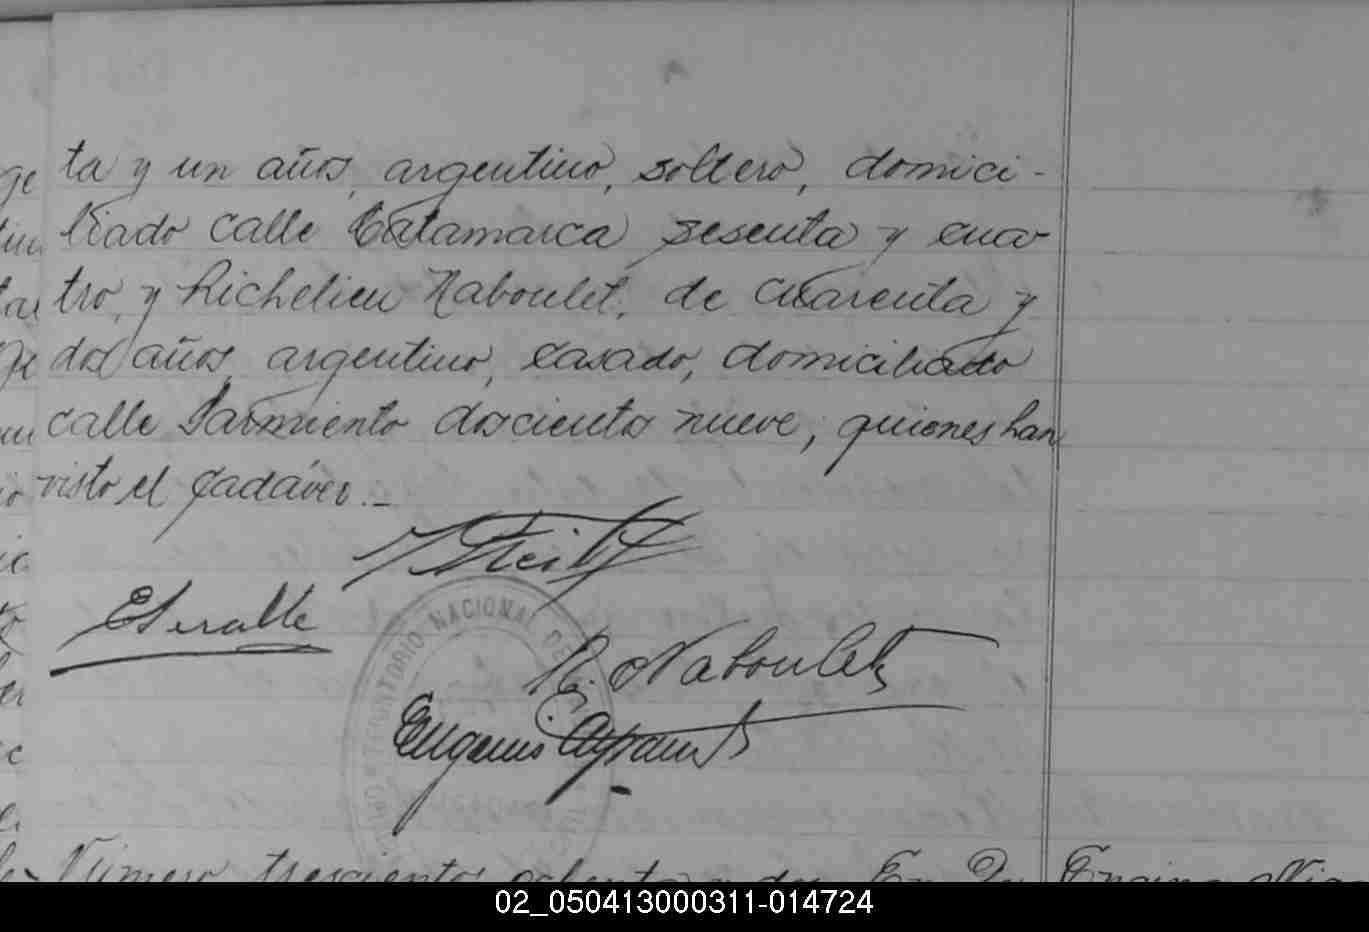 ta y un años, argentino, soltero, domici-
liado calle Catamarca sesenta y cua
tro, y Richelieu Naboulet, de cuarenta y
dos años, argentino, casado, domiciliado
calle Sarmiento doscientos nueve, quienes han
visto el cadáver.—
R. Naboulet
Eugenio
TERRITORIO NACIONAL DE
Número trescientos ochenta y dos En
02_050413000311-014724